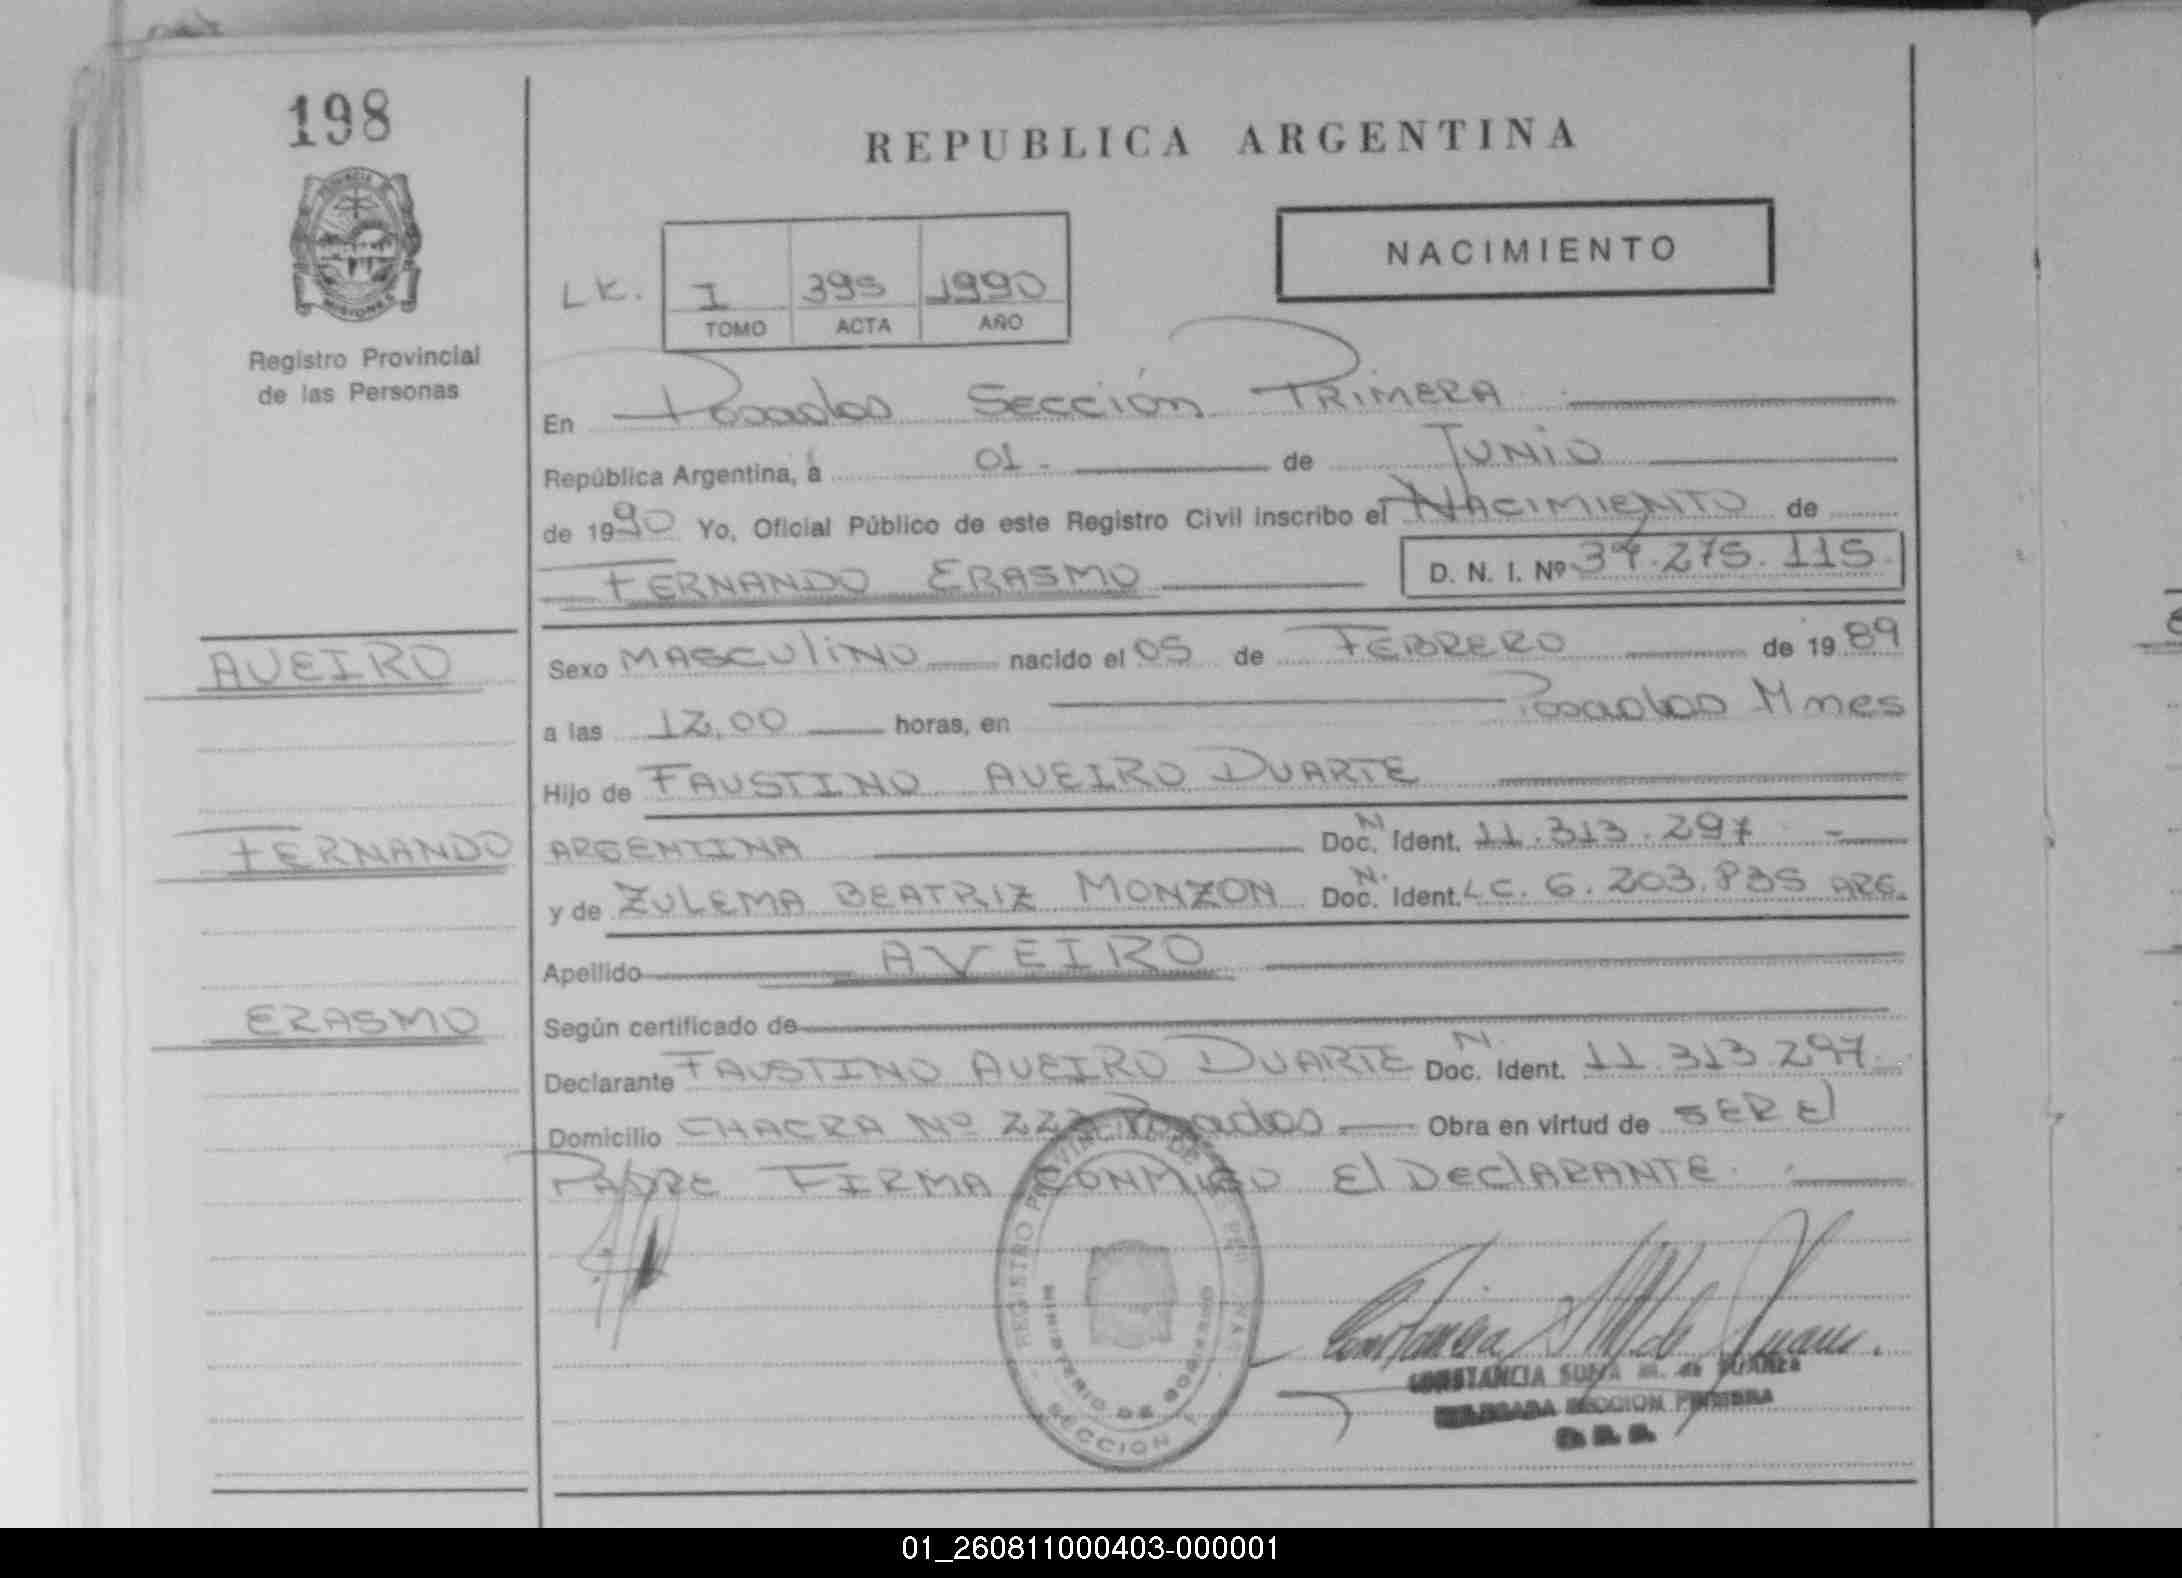 198
REPUBLICA ARGENTINA
NACIMIENTO
LK. I 395 1990
TOMO ACTA AÑO
Registro Provincial
de las Personas
En Posadas Sección PRIMERA
República Argentina, a 01 - de JUNIO
de 1990 Yo, Oficial Público de este Registro Civil inscribo el NACIMIENTO de
FERNANDO ERASMO D. N. I. Nº 34.275.115
AVEIRO
Sexo MASCULINO nacido el 05 de FEBRERO de 1989
a las 12,00 horas, en Posadas Mnes
Hijo de FAUSTINO AVEIRO DUARTE
FERNANDO
ARGENTINA Doc. N Ident. 11.313.297
y de ZULEMA BEATRIZ MONZON Doc. N. Ident. LC. 6.203.835 ARG.
Apellido AVEIRO
ERASMO
Según certificado de
Declarante FAUSTINO AVEIRO DUARTE Doc. N. Ident. 11.313.297
Domicilio CHACRA Nº 223 Posadas Obra en virtud de SER El
PADRE FIRMA CONMIGO El DEClARANTE
REGISTRO PROVINCIAL DE LAS PERSONAS
MINISTERIO DE GOBIERNO
SECCION 1
CONSTANCIA SUNA M. de SUAREZ
DELEGADA SECCION PRIMERA
01_260811000403-000001